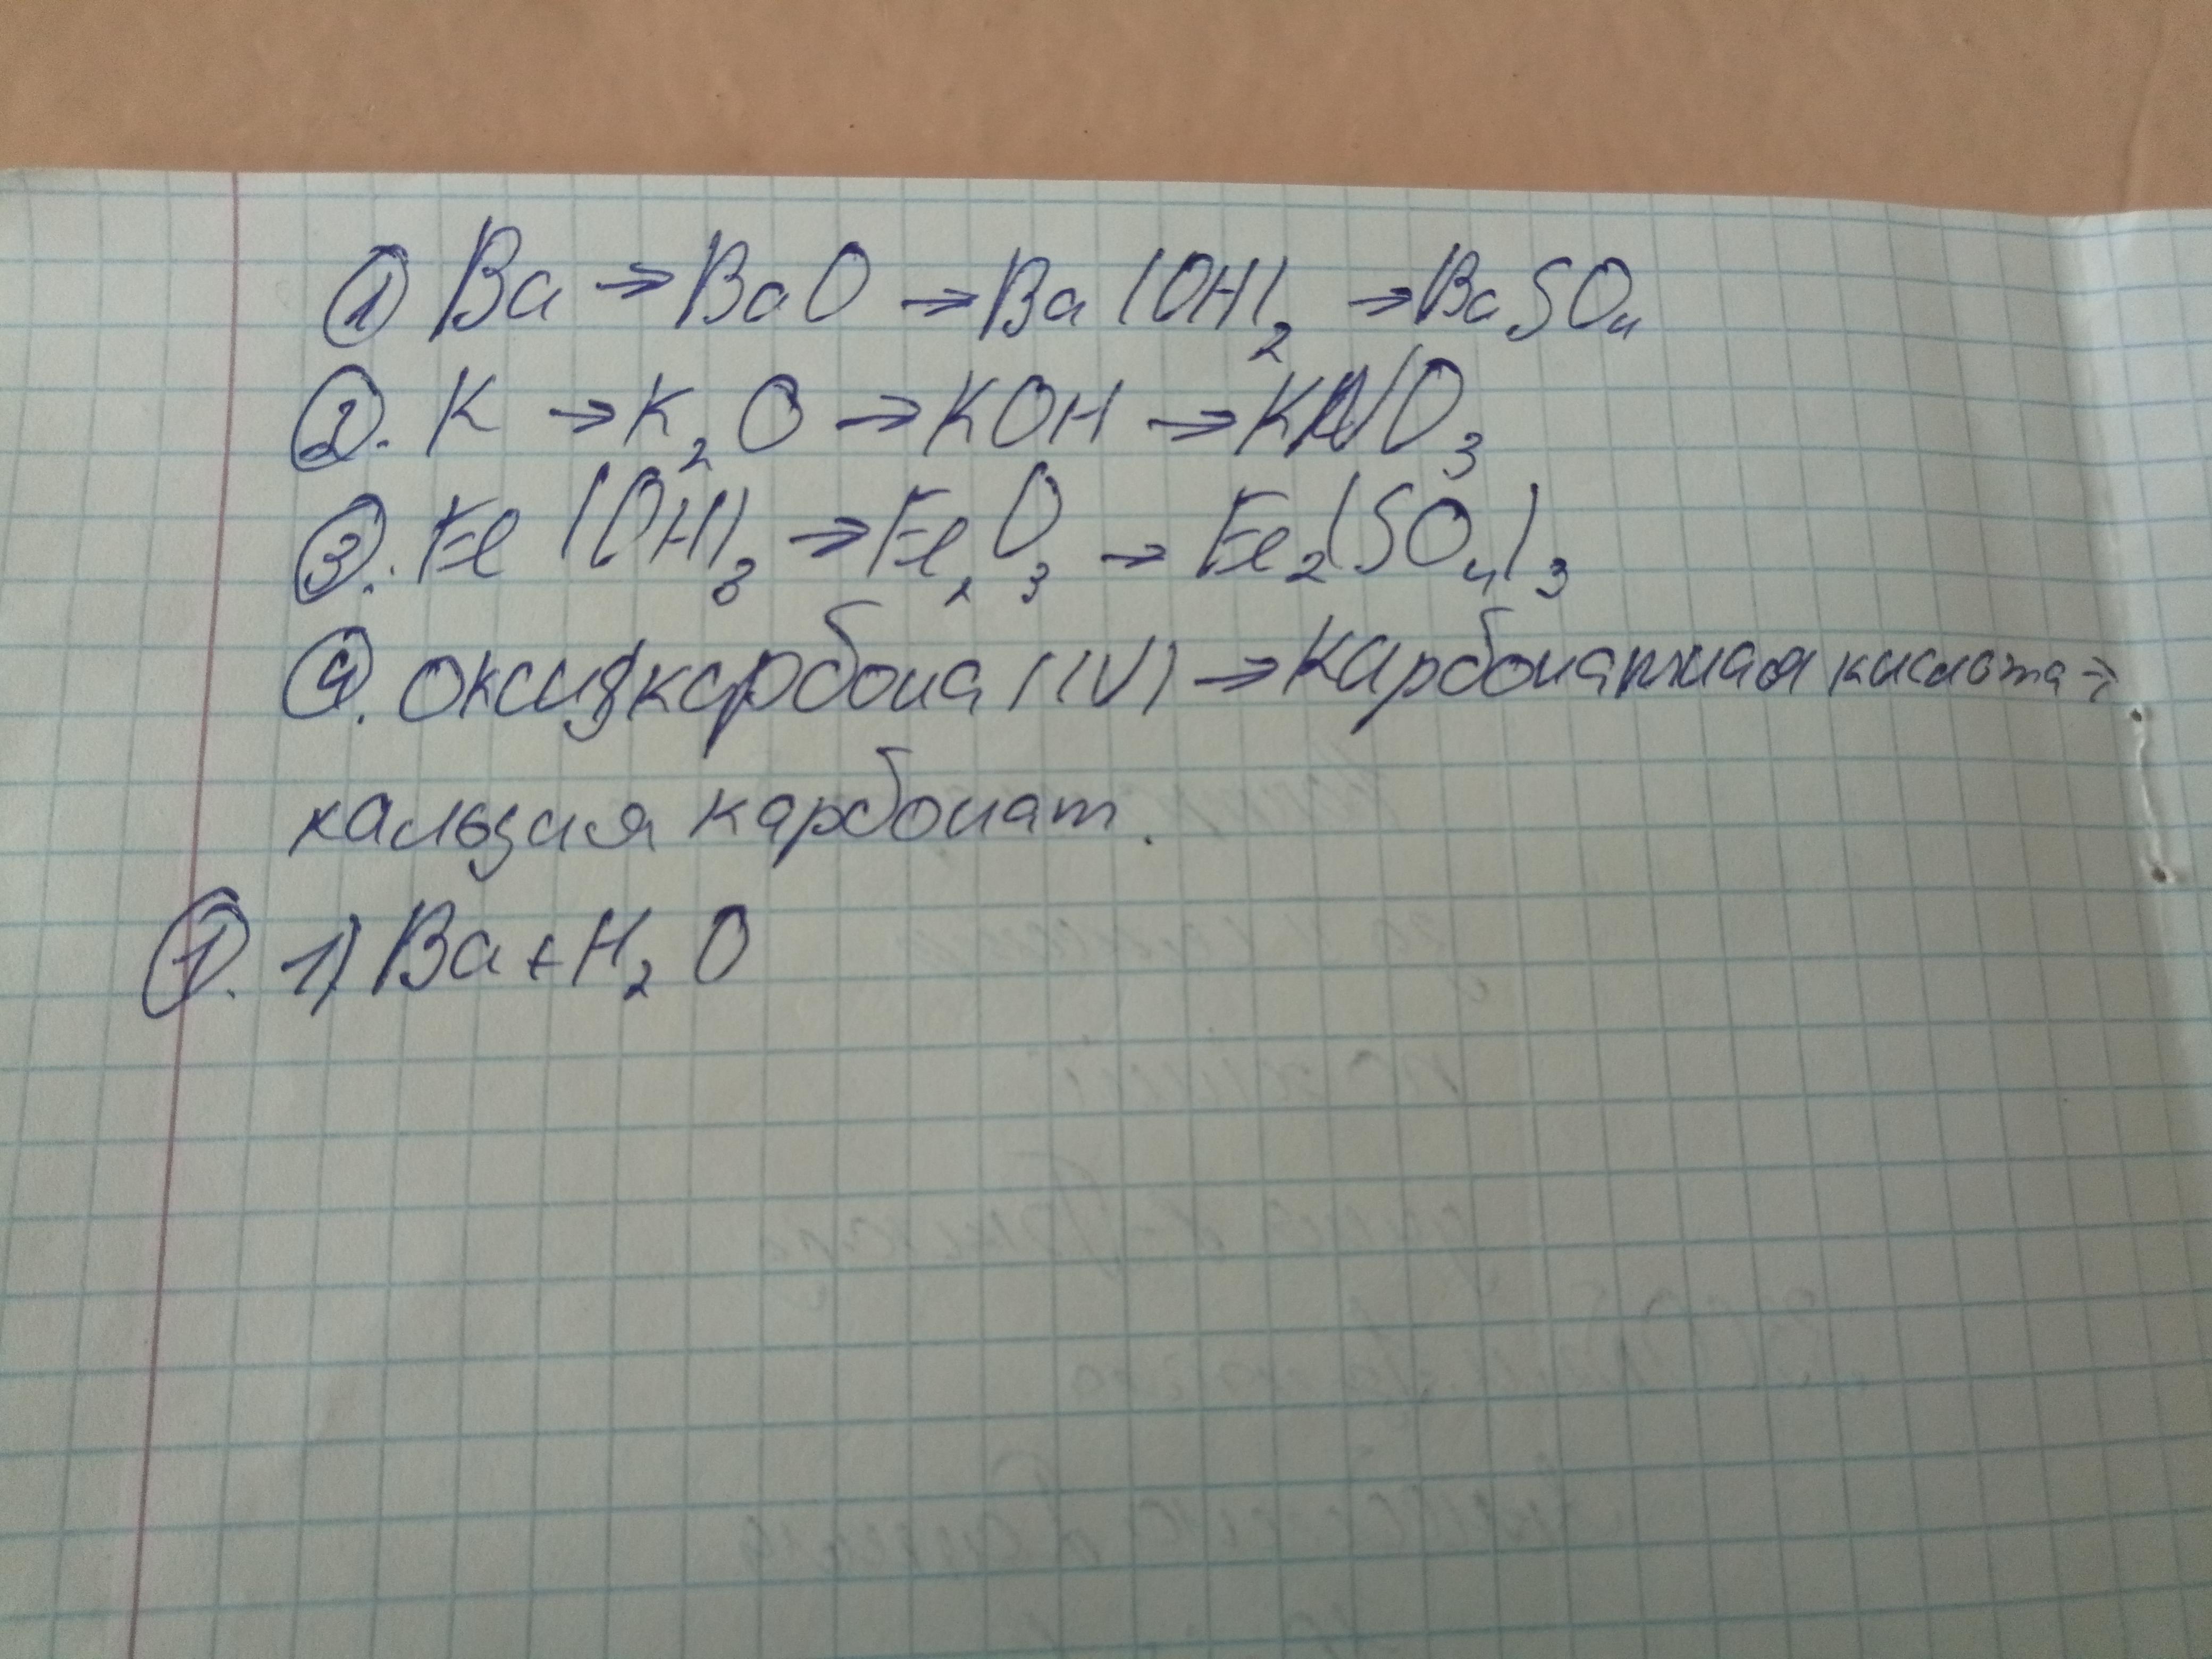 ① Ba → BaO → Ba(OH)₂ → BaSO₄
②. K → K₂O → KOH → KNO₃
③. Fe(OH)₃ → Fe₂O₃ → Fe₂(SO₄)₃
④. оксид карбона (IV) → карбонатная кислота →
кальция карбонат.
①. 1) Ba + H₂O